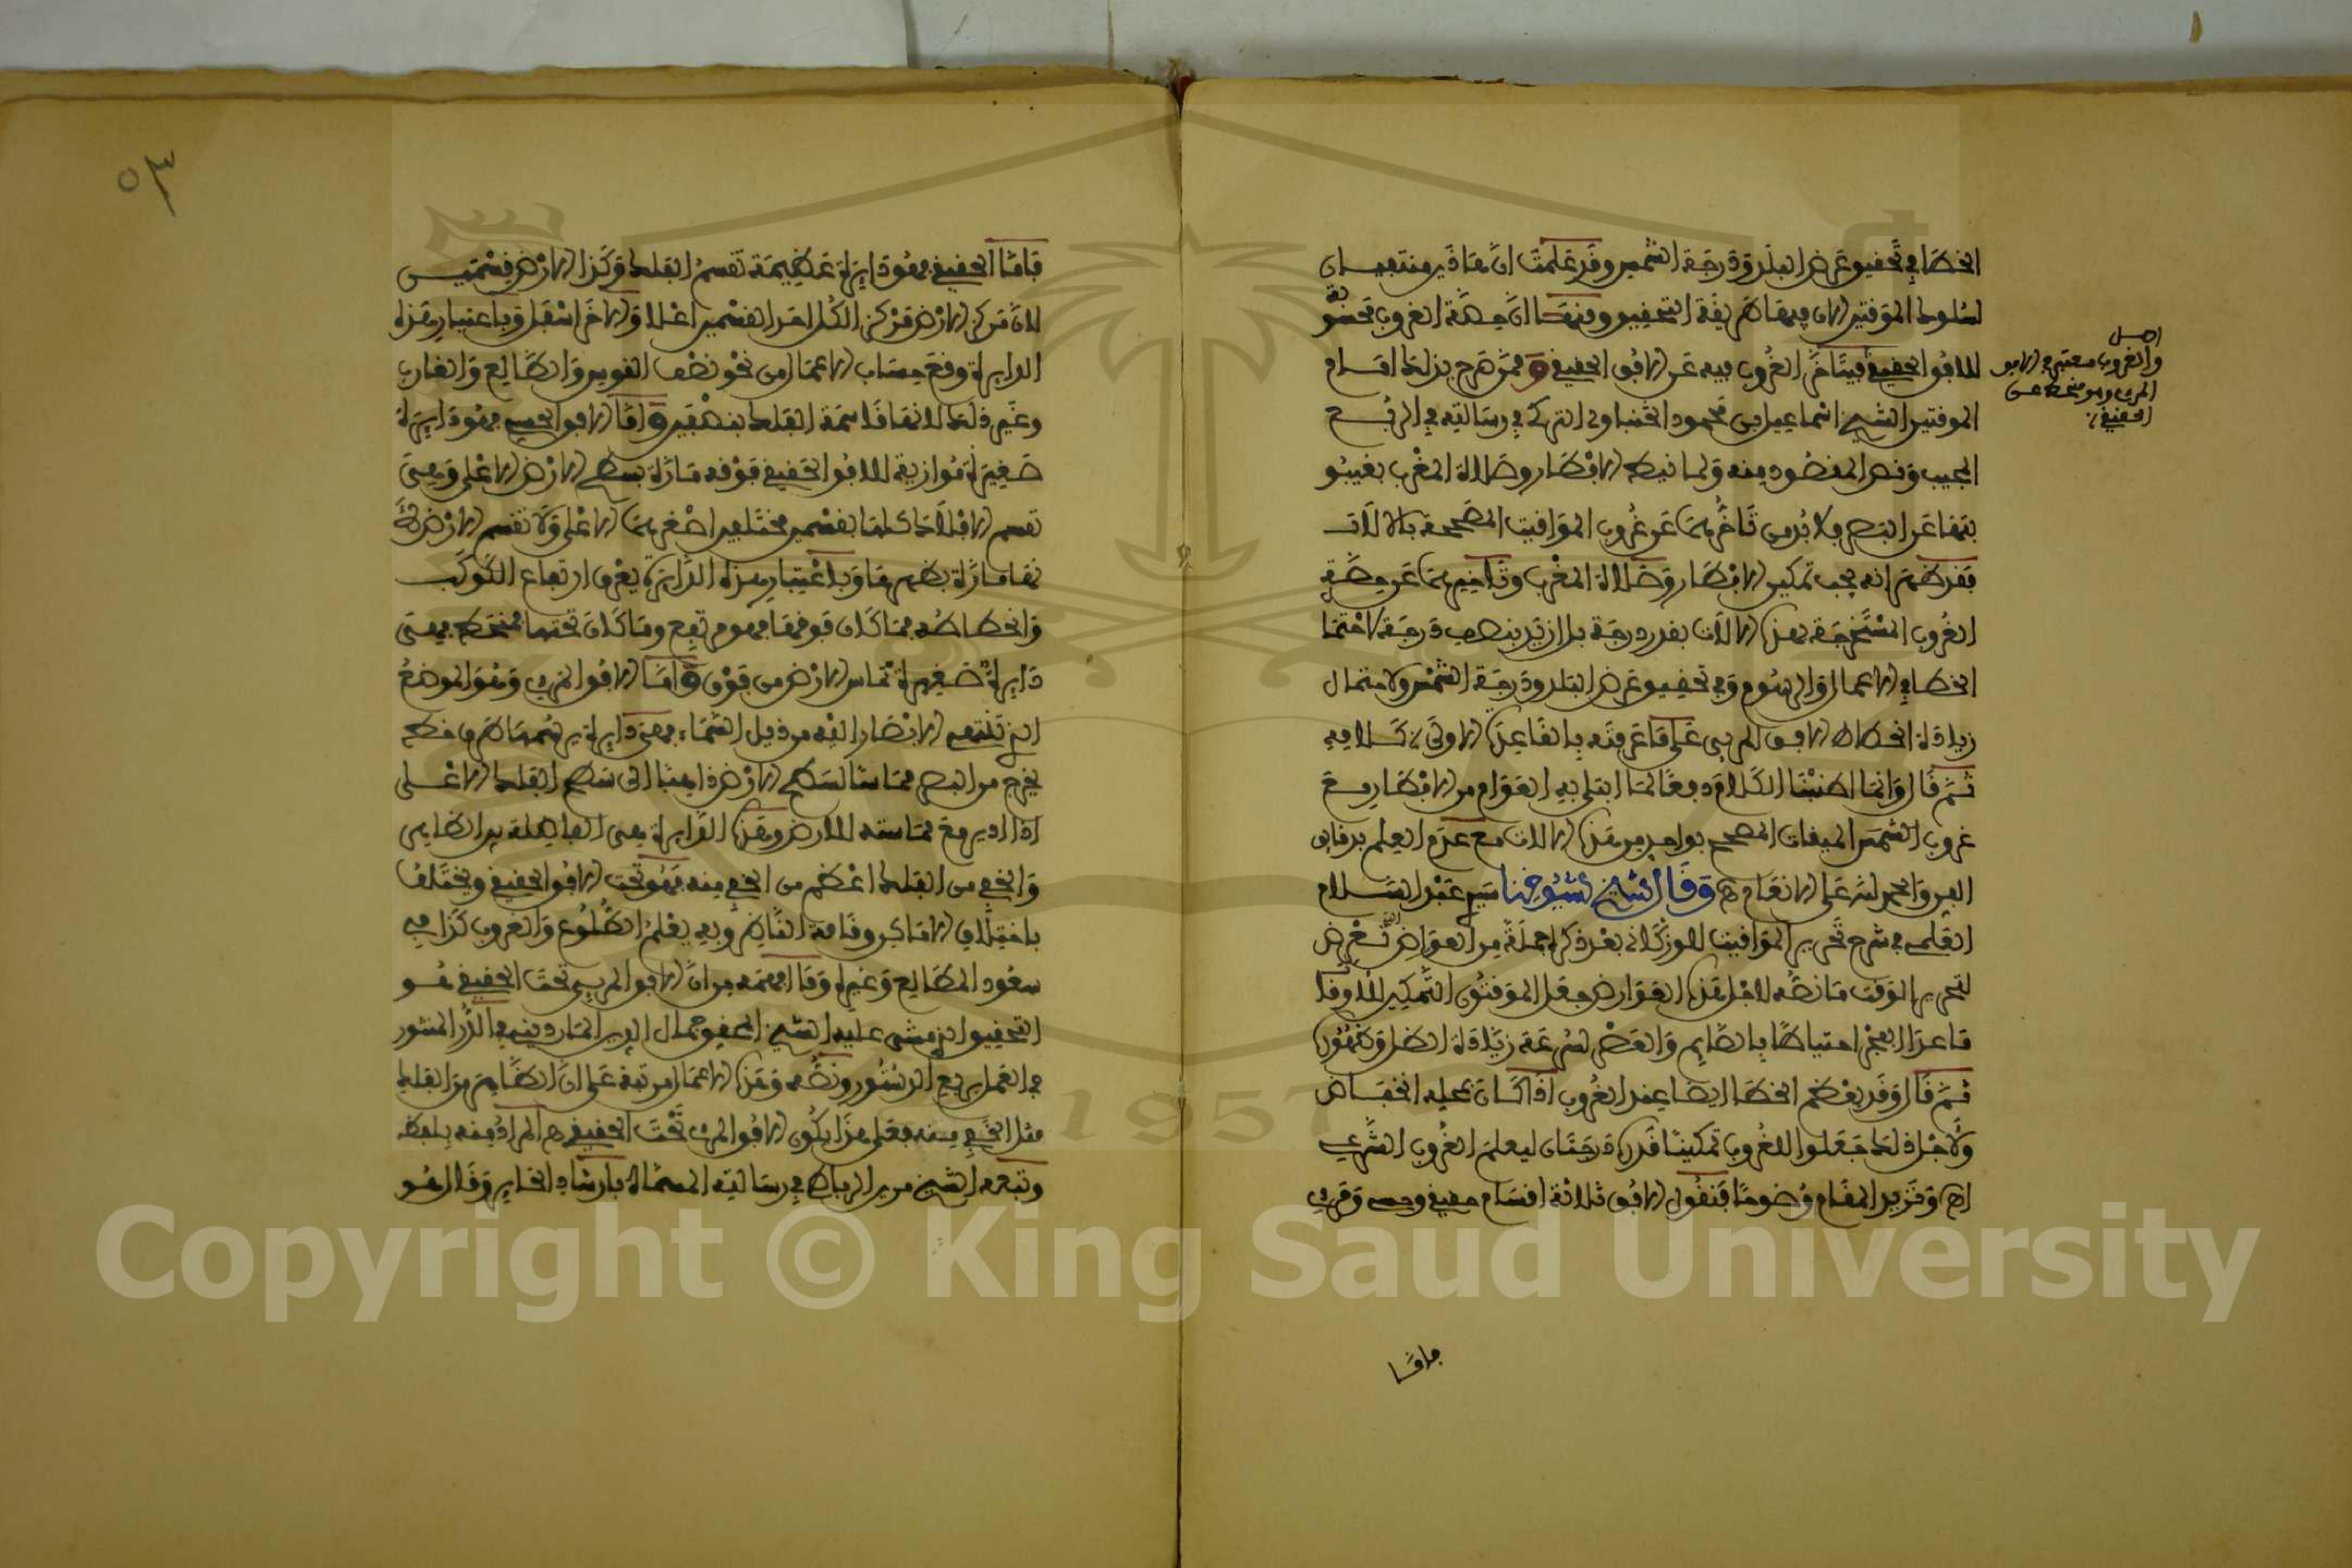 الخطا في تحقيق عرض البلد ودرجة الشمس وقد علمت ان هاذين منتفيان
لسلوك الموقتين الان فيهما طريقة التحقيق ومنها ان جهة الغروب مخفضة
للافق الحقيقي فيتاخر الغروب فيه عن الافق الحقيقي وممن صرح بذلك امام
الموقتين الشيخ اسماعيل بن محمود الخنباولي التركي في رسالته في الربع
المجيب ونص المقصود منه ولما نيط الافطار وصلاة المغرب بغيبو
بتها عن البصر فلا بد من تاخرهما عن غروب المواقيت المصححة بالالات
فقد ظهر انه يجب تمكين الافطار وصلاة المغرب وتاخيرهما عن حصة
الغروب المستخرجة بهذه الالات بقدر درجة بل ازيد بنصف درجة لاحتما
الخطا في الاعمال والرسوم وفي تحقيق عرض البلد ودرجة الشمس ولاحتمال
زيادة انحطاط الافق المرءي على ما عرفته بالقاعدة الاولى
ثم قال وانما اطنبنا الكلام دفعا لما ابتلي به العوام من الافطار مع
غروب الشمس الميقات المصحح بواحد من هذه الالات مع عدم العلم بدقايق
الفن والحمد لله على الانعام اه وقال شيخ شيوخنا سيدي عبد السلام
العلمي في شرح تحرير المواقيت للوزكاني بعد ذكره جملة من العوارض التي تعرض
لتحرير الوقت ما نصه لاجل هذه العوارض جعل الموقتون التمكين للاوقات
ما عدا الفجر احتياطا بالصايم والعصر لسرعة زيادة الظل وظهوره
ثم قال وقد يعظم الخطا ايضا عند الغروب اذا كان محله انخفاض
ولاجل ذلك جعلوا للغروب تمكينا قدره درجتان ليعلم الغروب الشرعي
اه ونزيد المقام وضوحا فنقول الافق ثلاثة اقسام حقيقي وحسي ومرءي
اصل
والغروب معتبر في الافق
المرءي وهو منحط عن
الحقيقي
فاما
فاما الحقيقي فهو دايرة عظيمة تقسم الفلك وكذا الارض بقسمين
لان مركز الارض مركز الكل احد القسمين اعلا والاخر اسفل وباعتبار هذه
الدايرة وقع حساب الاعمال من نحو نصف القوس والطالع والغارب
وغير ذلك لانها قاسمة الفلك بنصفين واما الافق الحسي فهو دايرة
صغيرة موازية للافق الحقيقي فوقه مارة بسطح الارض الاعلى وهي
تقسم الافلاك كلها بقسمين مختلفين اصغرهما الاعلى ولا تقسم الارض لا
نها مارة بظهرها وباعتبار هذه الدايرة يعرف ارتفاع الكوكب
وانحطاطه فما كان فوقها فهو مرتفع وما كان تحتها منحط فهي
دايرة صغيرة تماس الارض من فوق واما الافق المرءي وهو الموضع
الذي تنتهي الابصار اليه من ذيل السماء فهي دايرة يرسمها طرف خط
يخرج من البصر مماسا لسطح الارض ذاهبا الى سطح الفلك الاعلى
اذا ادير مع مماسته للارض وهذه الدايرة هي الفاصلة بين الظاهر
والخفي من الفلك اعظم من الخفي منه فهو تحت الافق الحقيقي ويختلف
باختلاف الاماكن وقامة الناظر وبه يعلم الطلوع والغروب كذا في
سعود المطالع وغيره وما افهمه من ان الافق المرءي تحت الحقيقي هو
التحقيق الذي مشى عليه الشيخ المحقق جمال الدين المارديني في الدر المنثور
في العمل بربع الدستور ونصه وهذه الاعمال مرتبة على ان الظاهر من الفلك
مثل الخفي منه فعلى هذا يكون الافق المرءي تحت الحقيقي اه المراد منه بلفظه
وتبعه الشيخ مربه الرباط في رسالته المسماة بارشاد الحاير وقال هو
٥٣
1957
Copyright © King Saud University